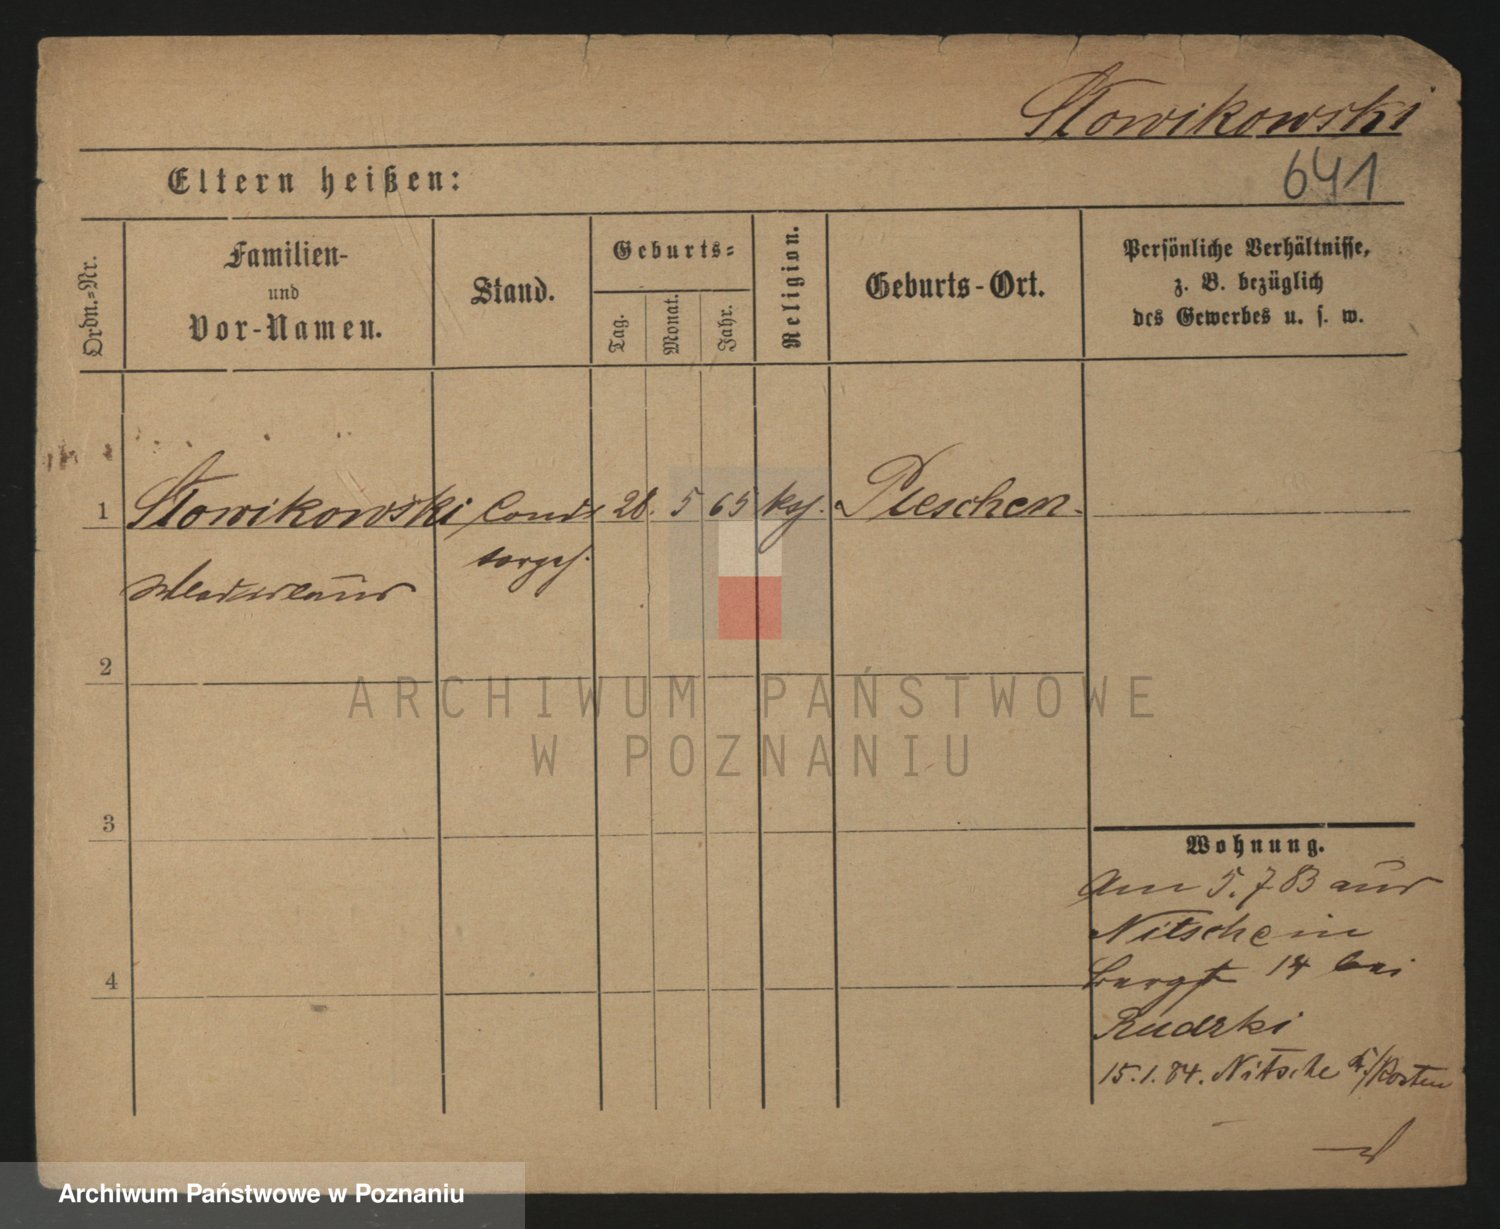 Słowikowski
641
Eltern heißen:
Ordn.=Nr.
Familien-
und
Vor-Namen.
Stand.
Geburts=
Tag.
Monat.
Jahr.
Religion.
Geburts-Ort.
Persönliche Verhältnisse,
z. B. bezüglich
des Gewerbes u. s. w.
1 Słowikowski Condi 28. 5 65 kg. Pleschen.
torgh.
Wladislaus
2
3
4
Wohnung.
Am 5.7 83 aus
Nitsche in
Bergst 14 bei
Rudzki
15.1.84. Nitsche Kosten
ARCHIWUM PAŃSTWOWE
W POZNANIU
Archiwum Państwowe w Poznaniu